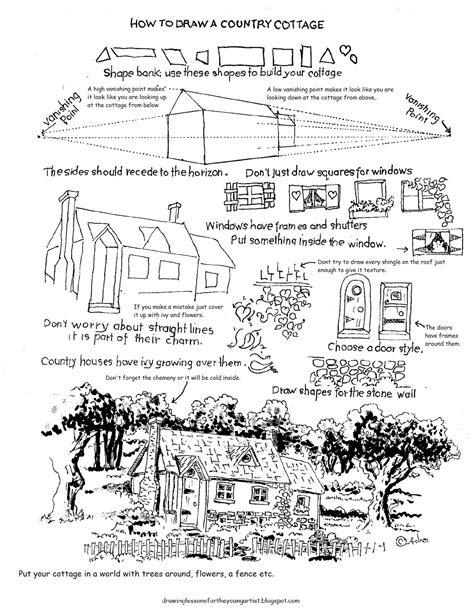 HOW TO DRAW A COUNTRY COTTAGE
Shape bank: use these shapes to build your cottage
A high vanishing point makes
it look like you are looking up
at the cottage from below
A low vanishing point makes it look like you are
looking down at the cottage from above.
Vanishing
Point
Vanishing
Point
The sides should recede to the horizon.
Don't just draw squares for windows
Windows have frames and shutters
Put something inside the window.
Dont try to draw every shingle on the roof just
enough to give it texture.
If you make a mistake just cover
it up with ivy and flowers.
Don't worry about straight lines
it is part of their charm.
The doors
have frames
around them.
Choose a door style.
Country houses have ivy growing over them.
Don't forget the chemeny or it will be cold inside.
Draw shapes for the stone wall
© Adron
Put your cottage in a world with trees around, flowers, a fence etc.
drawinglessonsfortheyoungartist.blogspot.com